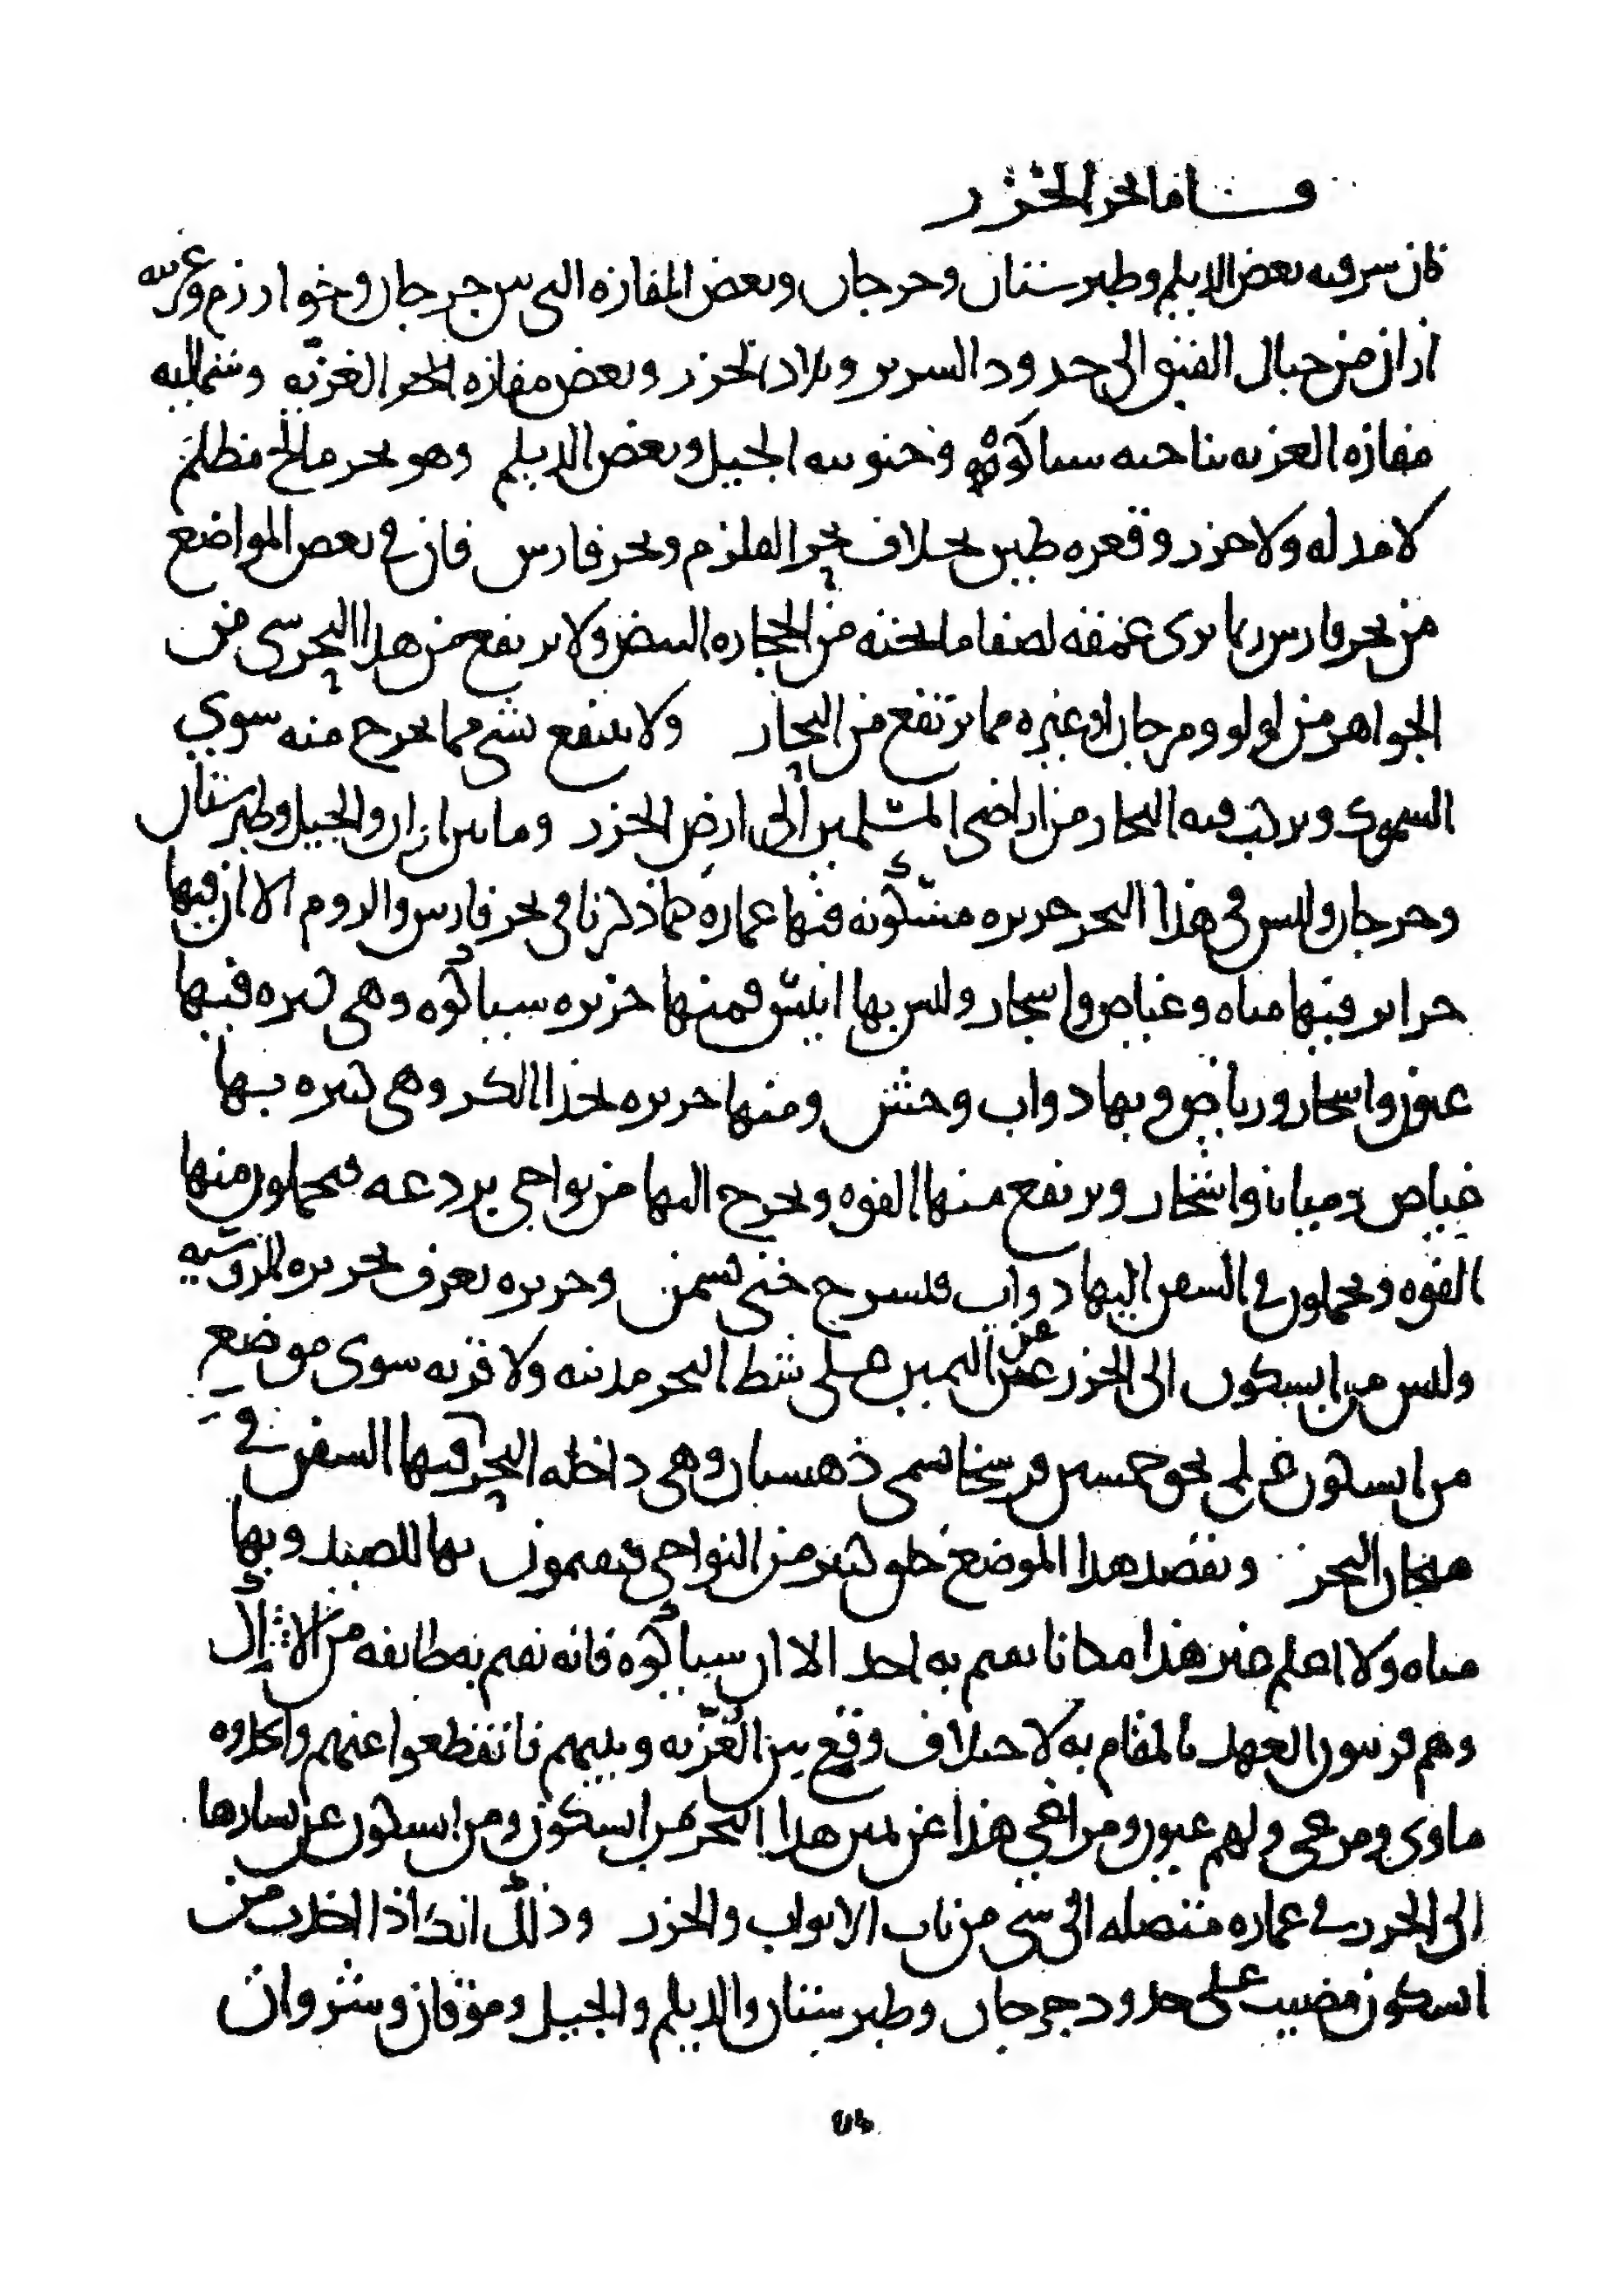 واما بحر الخزر
فان شرقيه بعض الديلم وطبرستان وجرجان وبعض المفازه التي بين جرجان وخوارزم وغربيه
اران من جبال القبق الى حدود السرير وبلاد الخزر وبعض مفازه الغزيه وشماليه
مفازه الغزيه بناحيه سياكوه وجنوبيه الجيل وبعض الديلم وهو بحر مالح مظلم
لا مد له ولا جزر وقعره طين بخلاف بحر القلزم وبحر فارس فان في بعض المواضع
من بحر فارس ربما يرى عمقه لصفا ما تحته من الحجاره البيض ولا يرتفع من هذا البحر شي من
الجواهر من لولو ومرجان او غيره مما يرتفع من البحار ولا ينتفع بشي مما يخرج منه سوي
السموك ويركب فيه التجار من اراضي المسلمين الى ارض الخزر وما بين اران والجيل وطبرستان
وجرجان وليس في هذا البحر جزيره مسكونه فيها عماره كما ذكرنا في بحر فارس والروم الا ان فيها
جزاير فيها مياه وغياض واشجار وليس بها انيس فمنها جزيره سياكوه وهي كبيره فيها
عيون واشجار ورياض وبها دواب وحش ومنها جزيره بحذا الكر وهي كبيره بها
غياض ومياه واشجار ويرتفع منها الفوه ويخرج اليها من نواحي بردعه فيحملون منها
الفوه ويحملون في السفن اليها دواب فتسرح حتى تسمن وجزيره تعرف بجزيره الروسيه
وليس من ابسكون الى الخزر عن اليمين على شط البحر مدينه ولا قريه سوى موضع
من ابسكون على نحو خمسين فرسخا يسمى دهستان وهي داخله البحر فيها السفن في
هيجان البحر ويقصد هذا الموضع خلق كثير من النواحي فيقيمون بها للصيد وبها
مياه ولا اعلم غير هذا مكانا يقيم به احد الا ان سياكوه فانه يقيم به طايفه من الاتراك
وهم قريبون العهد بالمقام به لاختلاف وقع بين الغزيه وبينهم فانقطعوا عنهم واتخذوه
ماوى ومرعى ولهم عيون ومراعي هذا عن يمين هذا البحر من ابسكون ومن ابسكون عن يسارها
الى الخزر في عماره متصله الا شي من باب الابواب والخزر وذلك انك اذا اخذت من
ابسكون مضيت على حدود جرجان وطبرستان والديلم والجيل وموقان وشروان